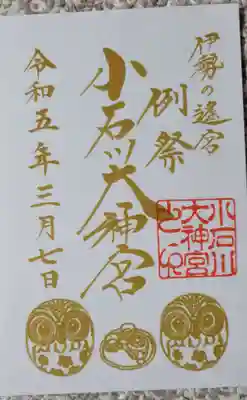 伊勢の遥宮
例祭
小石川大神宮
令和五年三月七日
小石川
大神宮